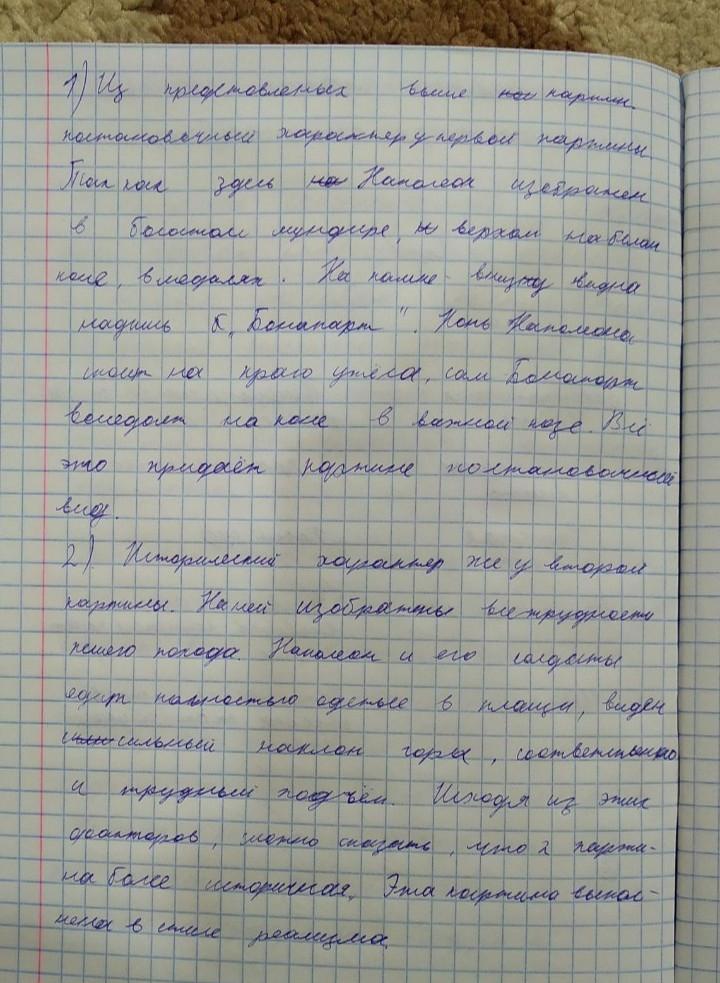 1) Из представленых выше картин
постановочный характер у первой картины
Так как здесь Наполеон изображен
в богатом мундире, верхом на белом
коне, в медалях. На камне внизу видна
надпись "Бонапарт". Конь Наполеона
стоит на краю утёса, сам Бонапарт
восседает на коне в важной позе. Всё
это придаёт картине постановочный
вид.
2) Исторический характер же у второй
картины. На ней изображены все трудности
пешего похода. Наполеон и его солдаты
едут полностью одетые в плащи, виден
сильный наклон горы, соответственно
и трудный подъём. Исходя из этих
факторов, можно сказать, что 2 карти-
на более историчная. Эта картина выпол-
нена в стиле реализма.